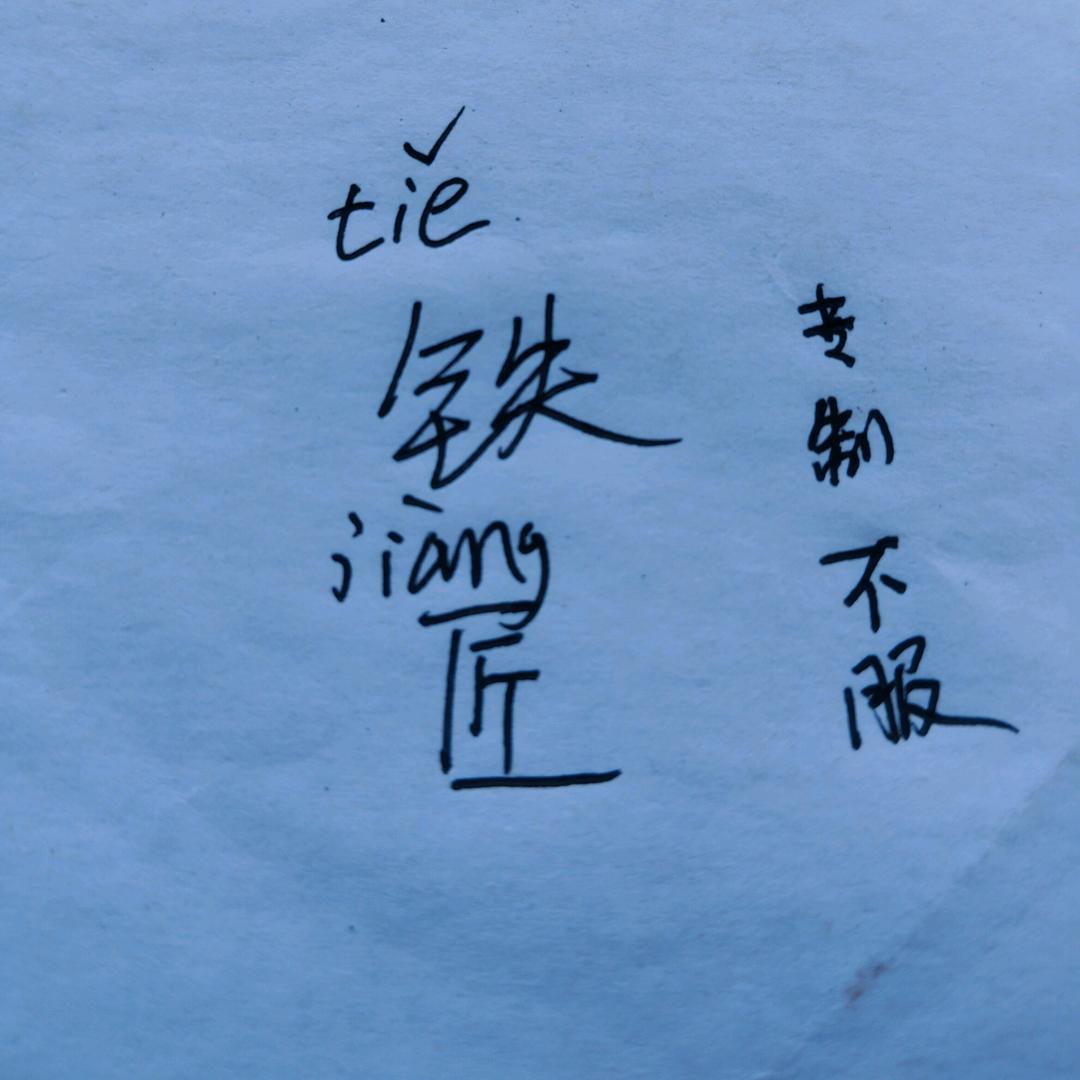 tiě
铁
jiàng
匠
专制不服